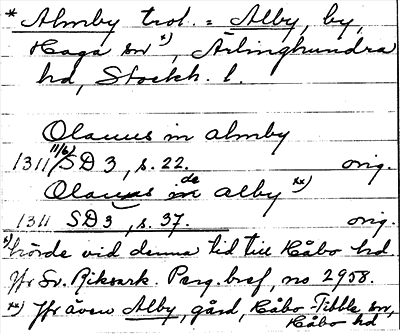 * Almby trol. = Alby, by,
Haga sn *), Ärlinghundra
hd, Stockh. l.
Olauus in almby
1311 11/6) SD 3, s. 22. orig.
Olauus de in alby **)
1311 SD 3, s. 37. orig.
*) hörde vid denna tid till Håbo hd.
Jfr Sv. Riksark. Perg.bref, no 2958.
**) Jfr även Alby, gård, Håbo-Tibble sn,
Håbo hd